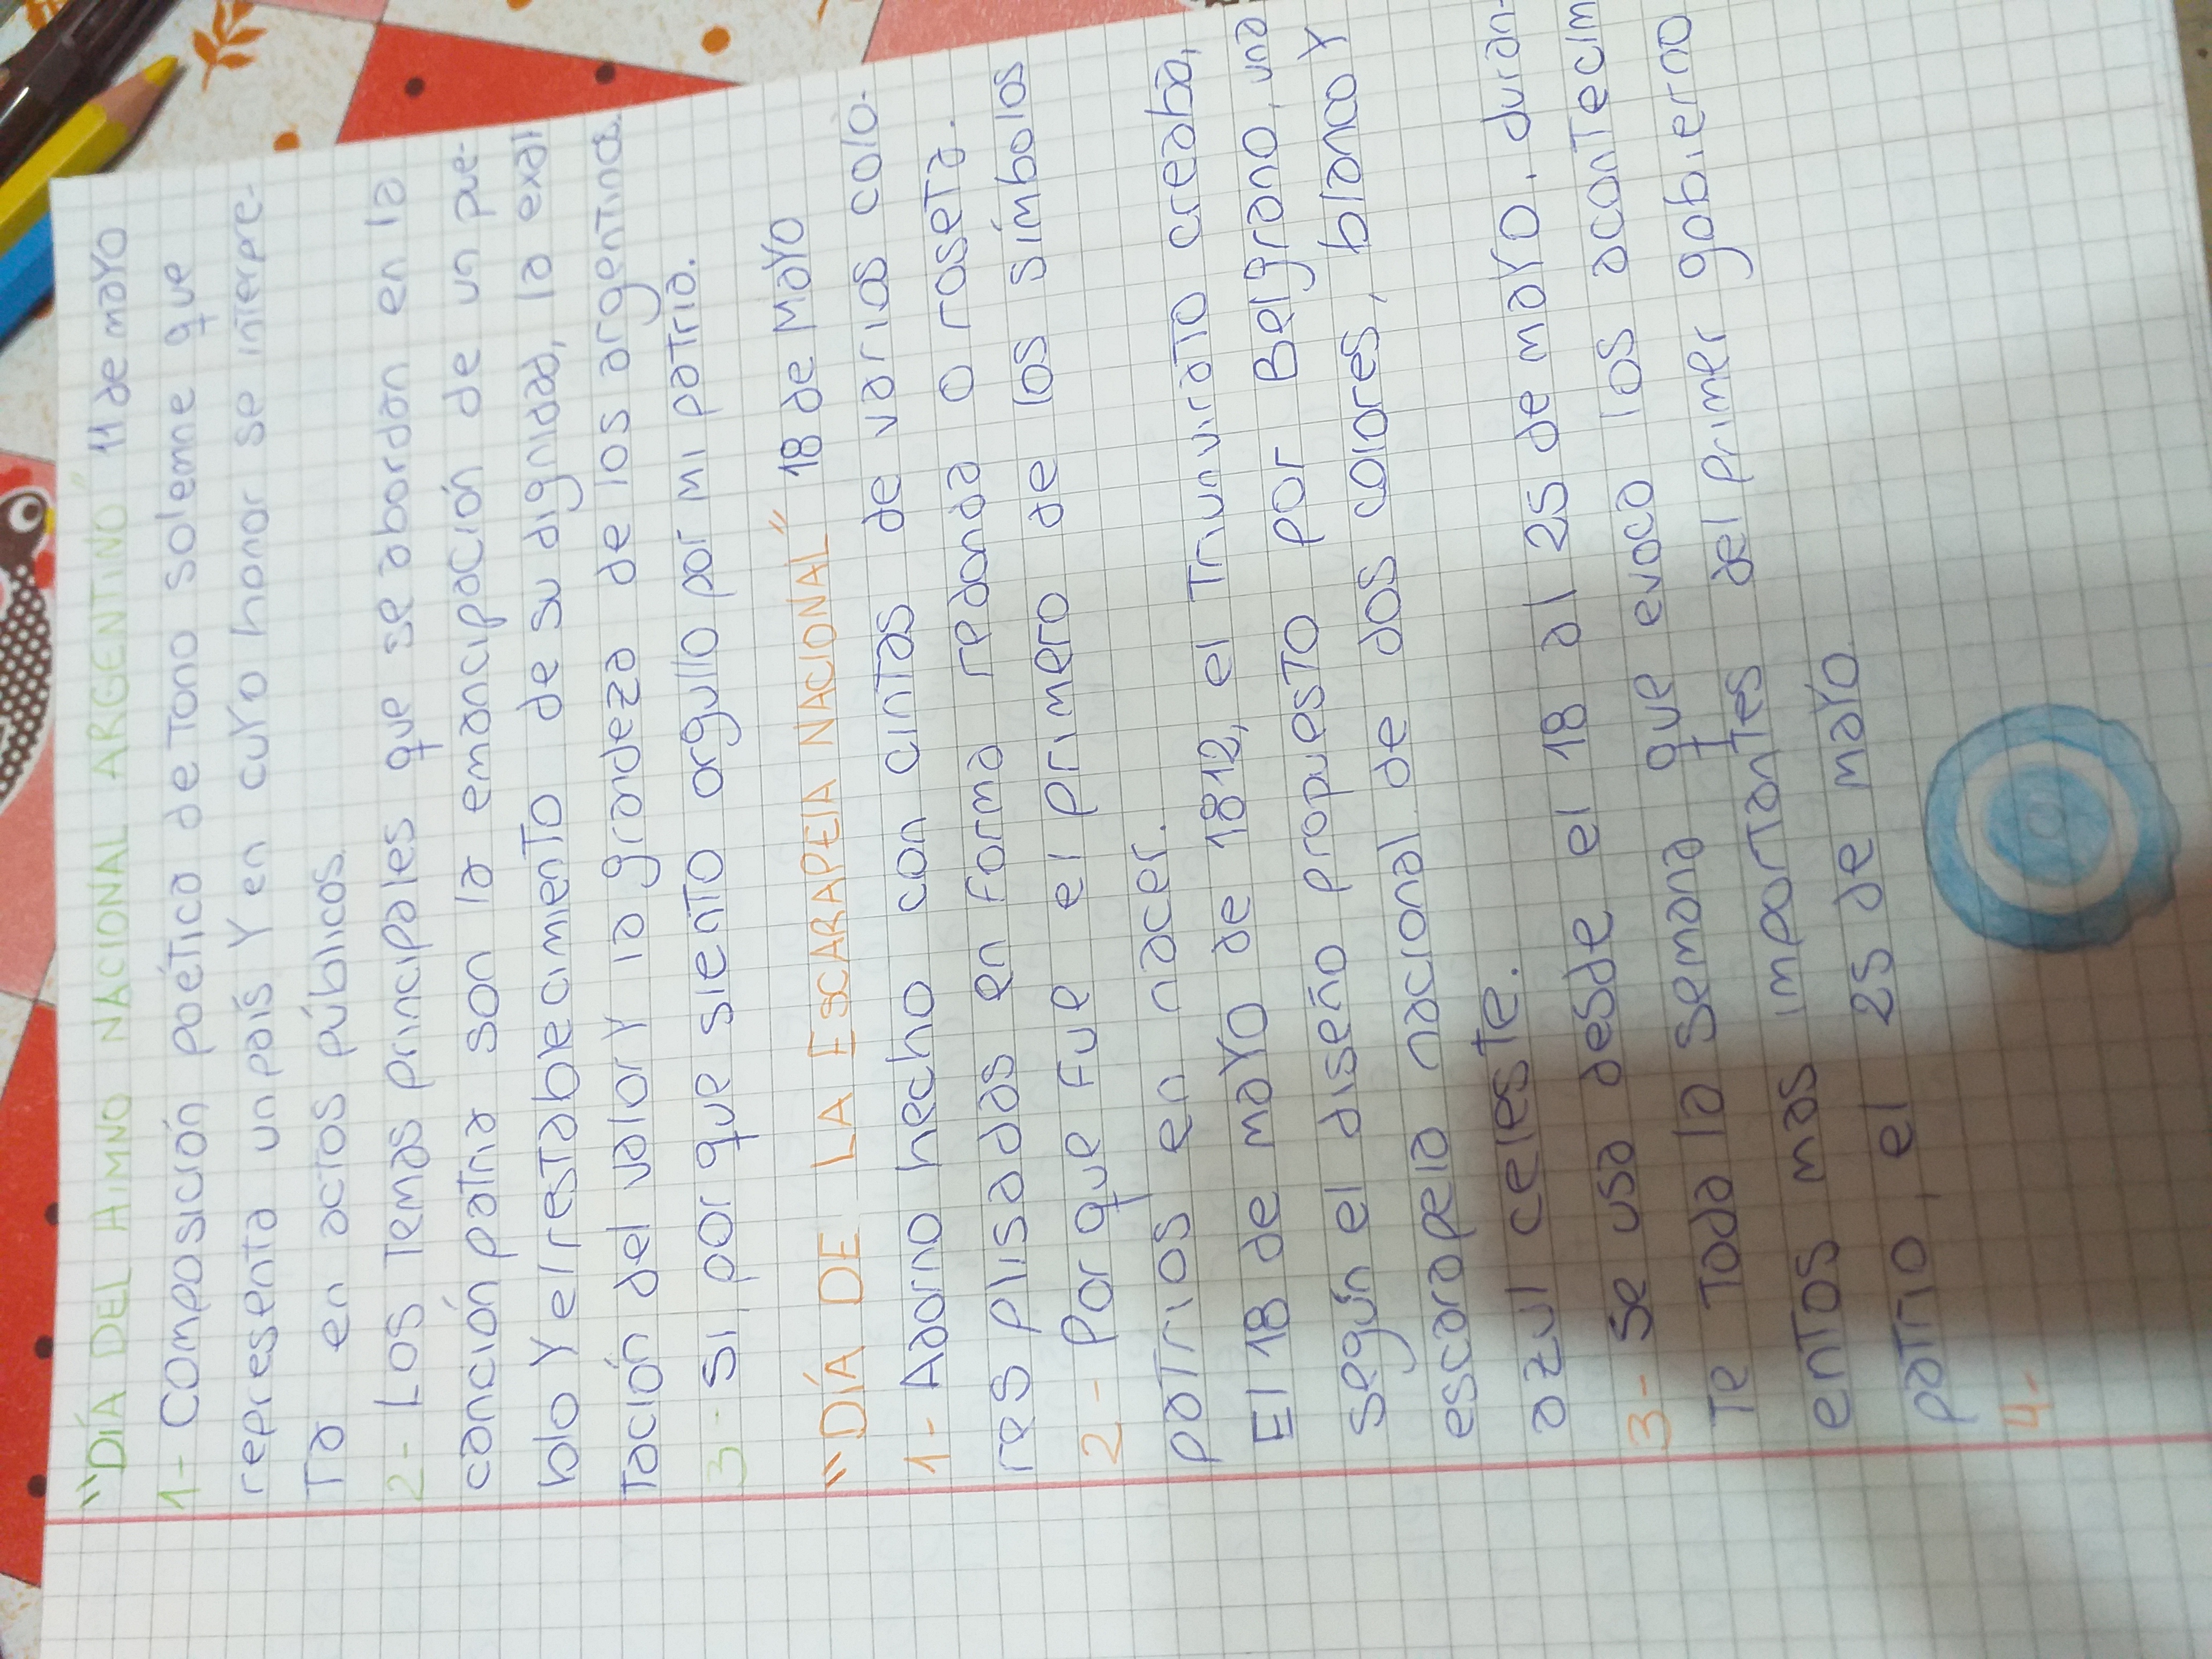 "DÍA DEL HIMNO NACIONAL ARGENTINO" 11 de mayo
1- Composición poética de tono solemne que
representa un país Y en cuyo honor se interpre-
ta en actos públicos.
2- Los temas principales que se abordan en la
canción patria son la emancipación de un pue-
blo Y el restablecimiento de su dignidad, la exal
tación del valor Y la grandeza de los argentinos.
3- Si, por que siento orgullo por mi patria.
"DÍA DE LA ESCARAPELA NACIONAL" 18 de Mayo
1- Adorno hecho con cintas de varios colo-
res plisadas en forma redonda o roseta.
2- Por que fue el primero de los símbolos
patrios en nacer.
El 18 de mayo de 1812, el Triunvirato creaba,
según el diseño propuesto por Belgrano, una
escarapela nacional de dos colores, blanco Y
azul celeste.
3- Se usa desde el 18 al 25 de mayo, duran-
te toda la semana que evoca los acontecim
entos mas importantes del primer gobierno
patrio, el 25 de mayo.
4-